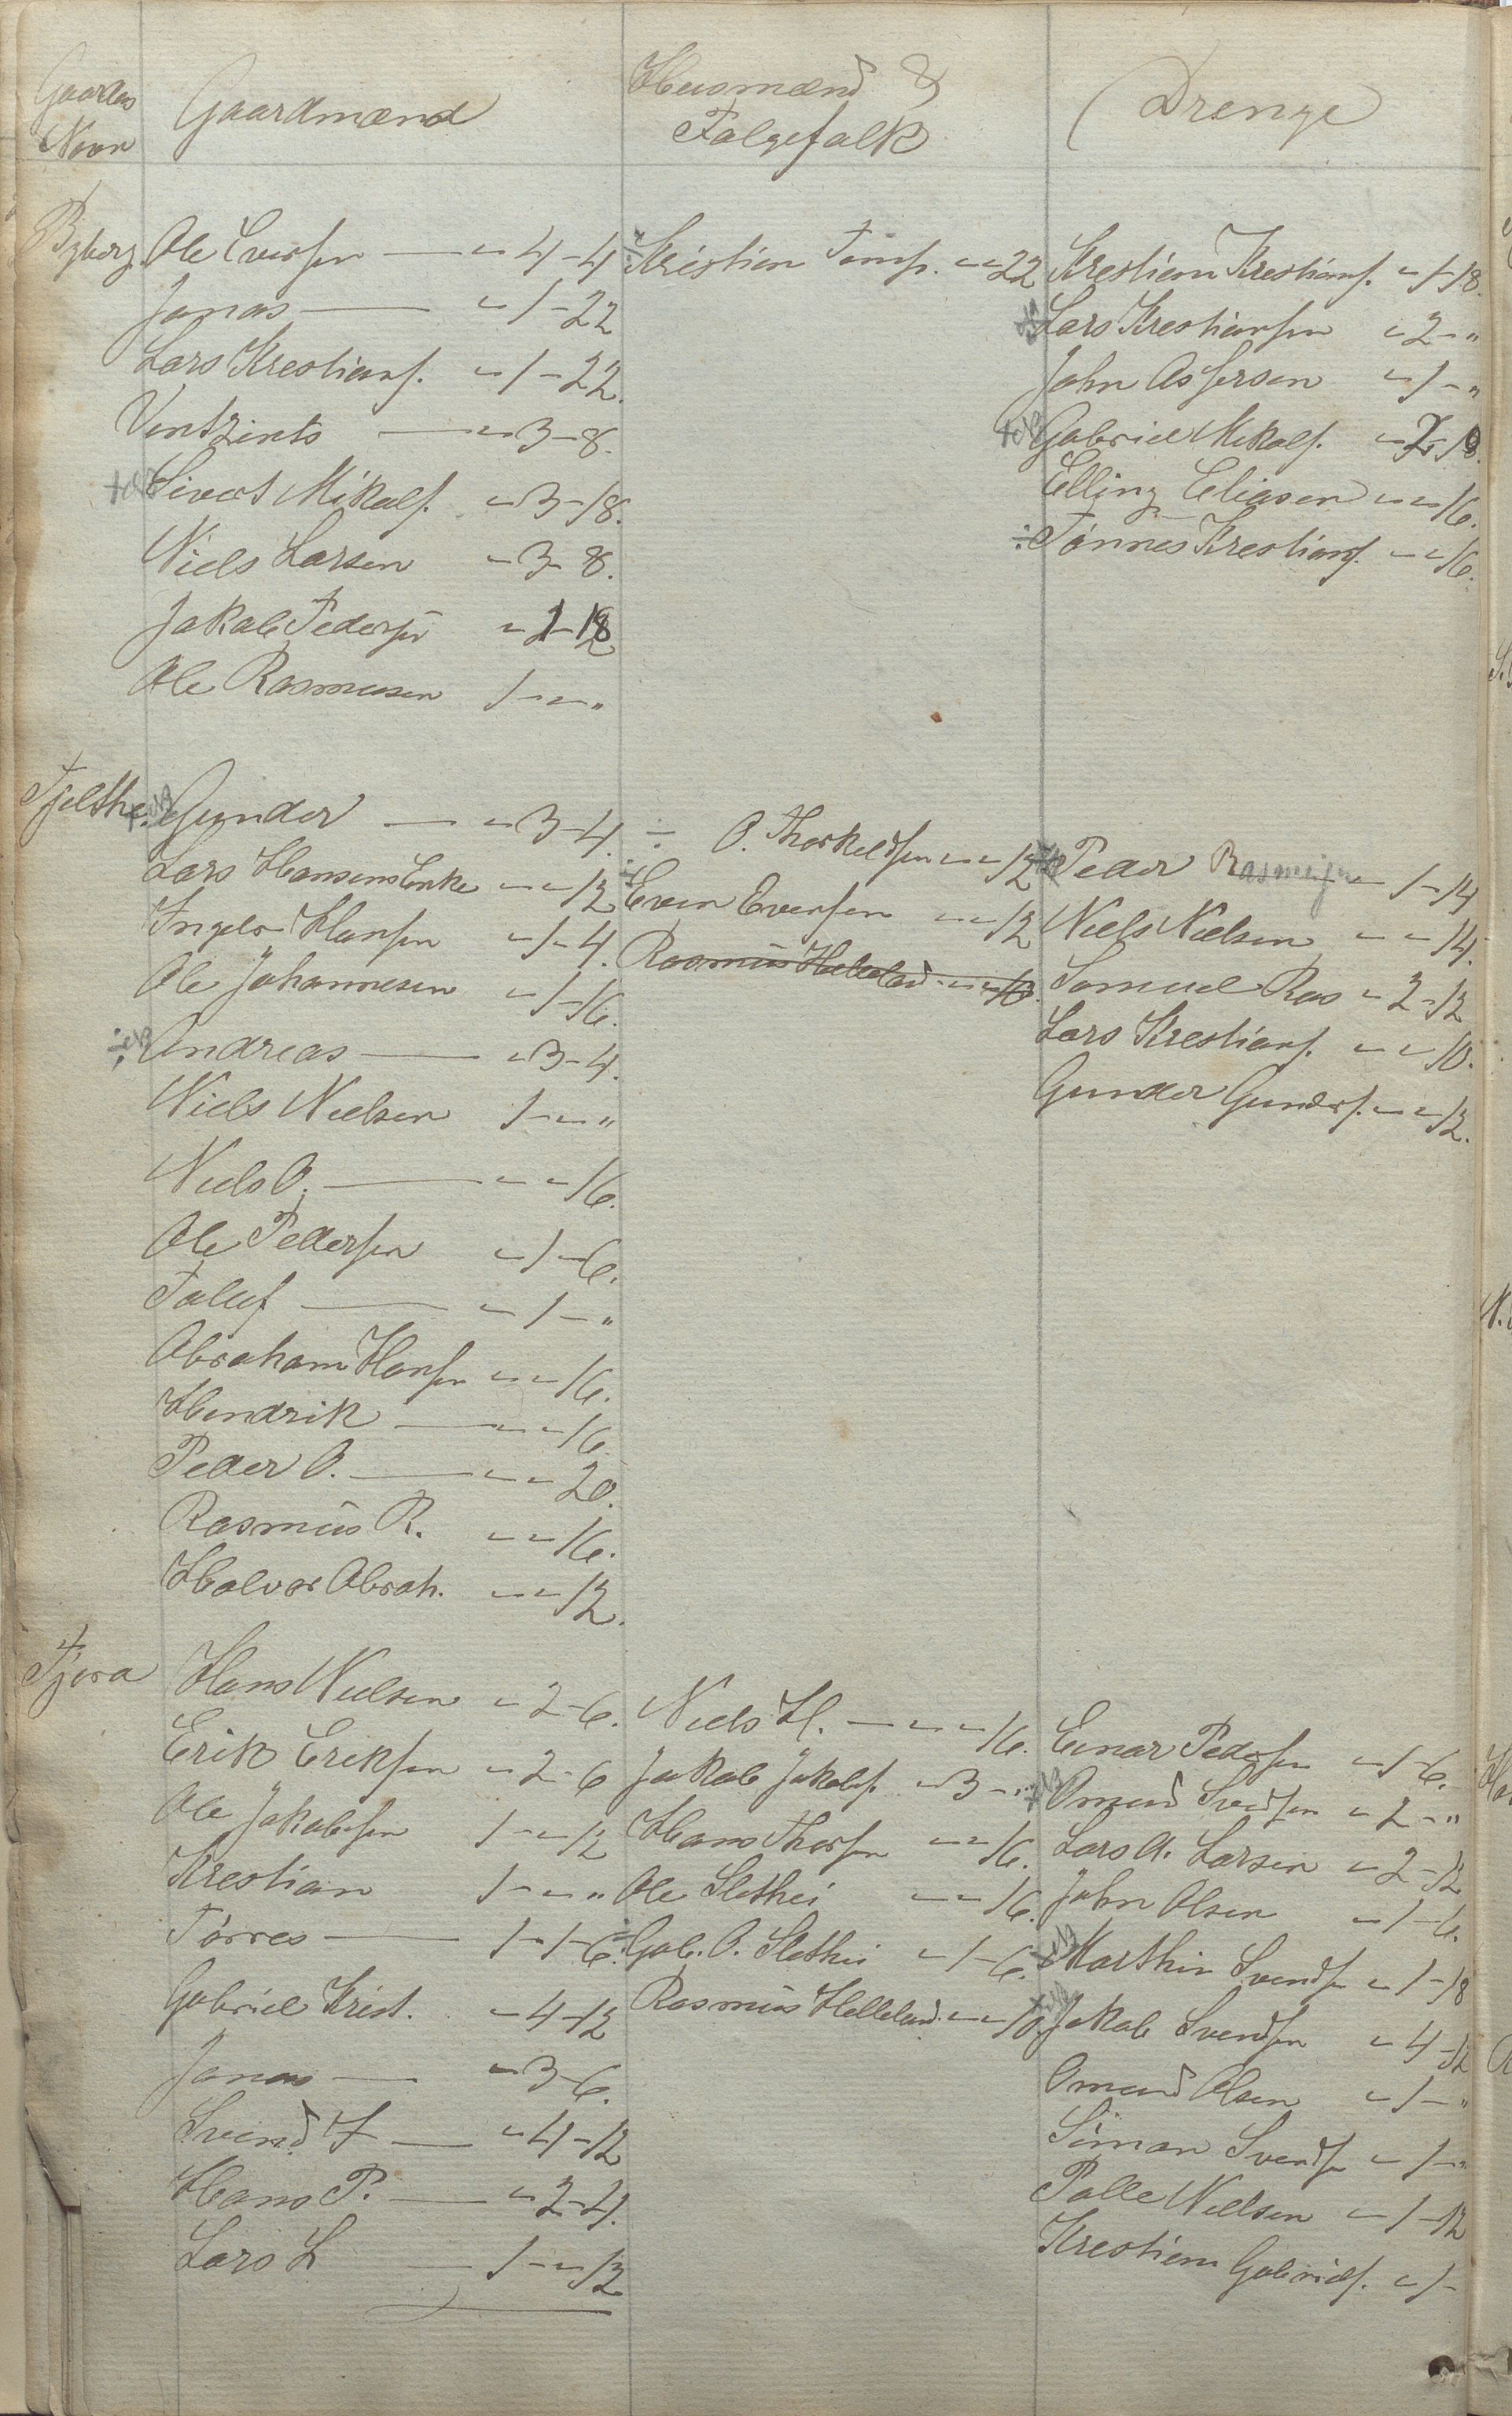 Gaardes Navn
Gaardmænd
Huusmænd &
Følgefolk
Drenge
Byberg.
Ole Eversen — " 4 - 4
Jonas — " 1 - 22
Lars Krestians. " 1 - 22.
Ventzints — " 3 - 8.
Sivert Mikals. " 3 - 18.
Niels Larsen " 3 - 8.
Jakob Pedersen " 1 - 18
Ole Rasmusen 1 - " - "
÷ Kristian Tøns. " " 22
Krestian Krestians. " 1 - 18.
Lars Krestiansen " 2 - "
John Assersen " 1 - "
Gabriel Mikals.
Elling Eliasen " " 16.
÷ Tönnes Krestians. " " 16.
Tjelthe.
Gunder — " 3 - 4.
Lars Hansens Enke " " 12
Ingebr Hansen " 1 - 4.
Ole Johannesen " 1 - 16.
Andreas — " 3 - 4.
Niels Nielsen 1 - " - "
Niels O. — " " 16.
Ole Pedersen " 1 - 6.
Tollef — " 1 - "
Abraham Hansen " " 16.
Hendrik — " " 16.
Peder O. — " " 20.
Rasmus R. " " 16.
Halvor Abrah. " " 12.
÷ O. Thorkeldsen " " 12
÷ Even Evensen " " 12
Rasmus Helleland " " 10.
Peder Rasmusen " 1 - 14
Niels Nielsen " " 14.
Samuel Ras " 2 - 12
Lars Krestians. " " 10.
Gunder Gunders. " " 12.
Tjora
Hans Nielsen " 2 - 6.
Erik Eriksen " 2 - 6
Ole Jakobsen 1 - " 12
Krestian 1 - " - "
Törres — 1 - 1 - 6.
Gabriel Krist. " 4 - 12
Jonas — " 3 - 6.
Svend T — " 4 - 12
Hans P. — " 2 - 4.
Lars L — 1 - " 12
Niels H. — " " 16.
Jakob Jakobs. " 3 - "
Hans Thorsen " " 16.
Ole Slethei " " 16.
÷ Gab. O. Slethei " 1 - 6.
Rasmus Helleland. " " 10
Einar Pedersen " 1 - 6.
Omund Svendsen " 2 - "
Lars A. Larsen " 2 - 12
John Olsen " 1 - 6.
Marthin Svendsen " 1 - 18
Jakob Svendsen " 4 - 12
Omund Olsen " 1 - "
Siman Svendsen " 1 - "
Palle Nielsen " 1 - 12
Krestian Gabriels. " 1 -